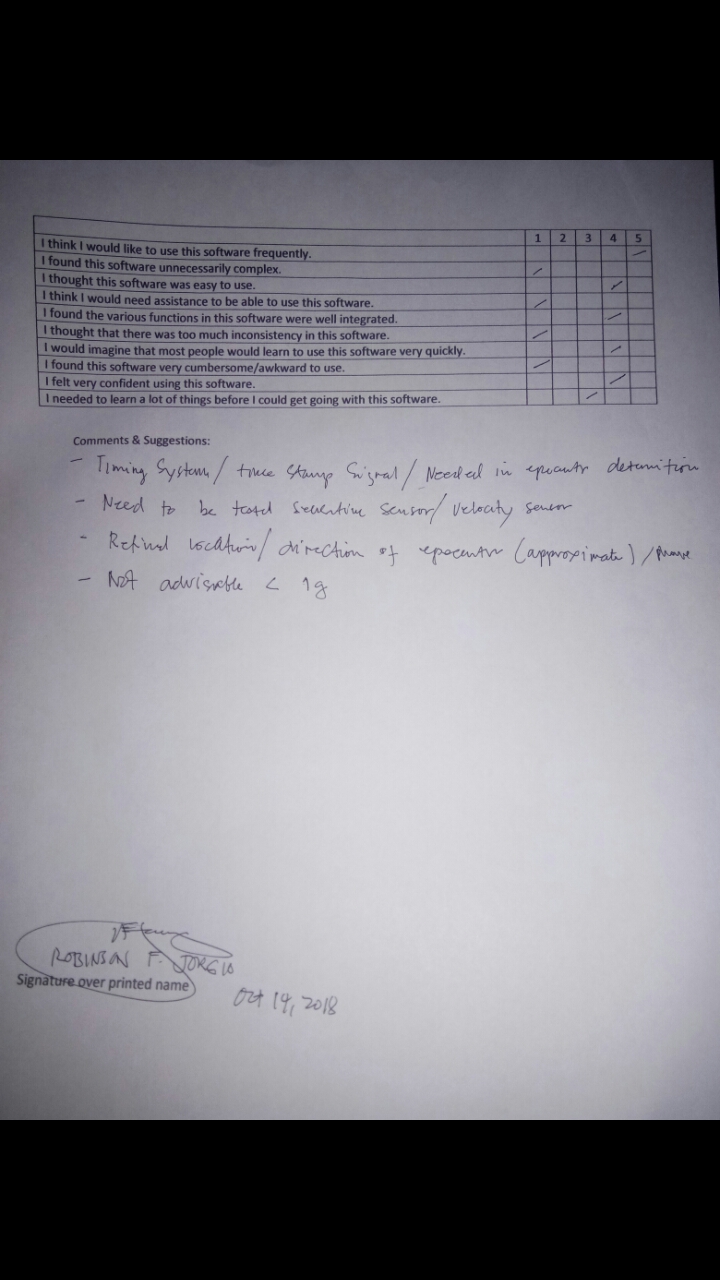 1 2 3 4 5
I think I would like to use this software frequently.
I found this software unnecessarily complex.
I thought this software was easy to use.
I think I would need assistance to be able to use this software.
I found the various functions in this software were well integrated.
I thought that there was too much inconsistency in this software.
I would imagine that most people would learn to use this software very quickly.
I found this software very cumbersome/awkward to use.
I felt very confident using this software.
I needed to learn a lot of things before I could get going with this software.
Comments & Suggestions:
- Timing System / Stamp Signal / Needed in
- Need to be sensor / Velocity sensor
- location / direction of (approximate) /
- Not advisable < 1g
ROBINSON F. JORGIO
Signature over printed name
Oct 14, 2018